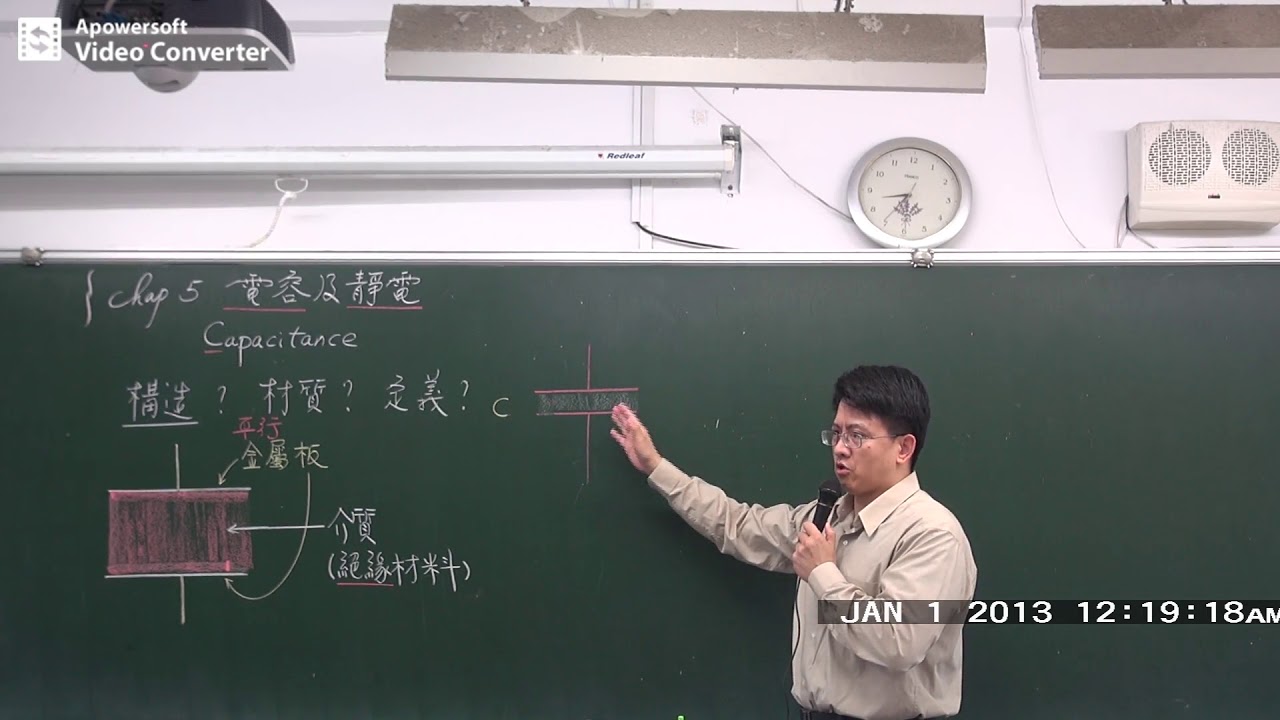 Apowersoft
Video Converter
Redleaf
12
11
1
10
2
9
3
8
4
7
5
6
Chap 5 電容及靜電
Capacitance
構造? 材質? 定義?
C
平行
金屬板
介質
(絕緣材料)
JAN 1 2013 12:19:18AM